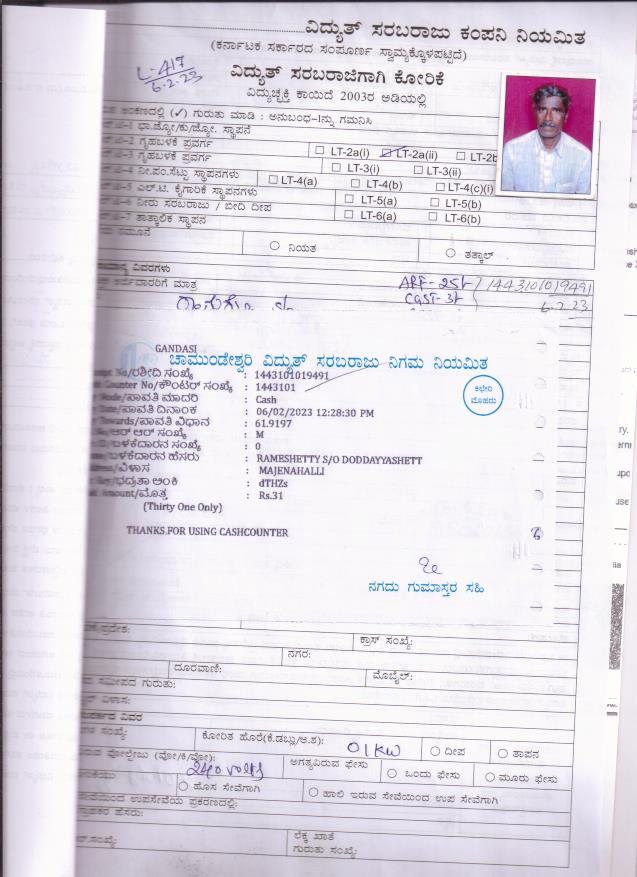 ವಿದ್ಯುತ್ ಸರಬರಾಜು ಕಂಪನಿ ನಿಯಮಿತ
(ಕರ್ನಾಟಕ ಸರ್ಕಾರದ ಸಂಪೂರ್ಣ ಸ್ವಾಮ್ಯಕ್ಕೊಳಪಟ್ಟಿದೆ)
L-417
6.2.23
ವಿದ್ಯುತ್ ಸರಬರಾಜಿಗಾಗಿ ಕೋರಿಕೆ
ವಿದ್ಯುಚ್ಛಕ್ತಿ ಕಾಯಿದೆ 2003ರ ಅಡಿಯಲ್ಲಿ
ಅಂಕಣದಲ್ಲಿ (✓) ಗುರುತು ಮಾಡಿ : ಅನುಬಂಧ-1ನ್ನು ಗಮನಿಸಿ
ಭಾ.ಜ್ಯೋ/ಕು/ಜ್ಯೋ. ಸ್ಥಾಪನೆ
ಗೃಹಬಳಕೆ ಪ್ರವರ್ಗ LT-2a(i) LT-2a(ii) LT-2b
ಗೃಹಬಳಕೆ ಪ್ರವರ್ಗ LT-3(i) LT-3(ii)
ನೀ.ಪಂ.ಸೆಟ್ಟು ಸ್ಥಾಪನಗಳು LT-4(a) LT-4(b) LT-4(c)(i)
ಎಲ್.ಟಿ. ಕೈಗಾರಿಕೆ ಸ್ಥಾಪನಗಳು LT-5(a) LT-5(b)
ನೀರು ಸರಬರಾಜು / ಬೀದಿ ದೀಪ LT-6(a) LT-6(b)
ತಾತ್ಕಾಲಿಕ ಸ್ಥಾಪನ
ನಮೂನೆ ನಿಯತ ತತ್ಕಾಲ್
ವಿವರಗಳು
ಅರ್ಜಿದಾರರಿಗೆ ಮಾತ್ರ ARF-25/- 1443101019491
CGST-3/- 6.2.23
GANDASI
ಚಾಮುಂಡೇಶ್ವರಿ ವಿದ್ಯುತ್ ಸರಬರಾಜು ನಿಗಮ ನಿಯಮಿತ
No/ರಶೀದಿ ಸಂಖ್ಯೆ : 1443101019491
Counter No/ಕೌಂಟರ್ ಸಂಖ್ಯೆ : 1443101
ಕಛೇರಿ
ಮೊಹರು
Mode/ಪಾವತಿ ಮಾದರಿ : Cash
Date/ಪಾವತಿ ದಿನಾಂಕ : 06/02/2023 12:28:30 PM
Towards/ಪಾವತಿ ವಿಧಾನ : 61.9197
No/ಆರ್ ಆರ್ ಸಂಖ್ಯೆ : M
ಬಳಕೆದಾರನ ಸಂಖ್ಯೆ : 0
ಬಳಕೆದಾರನ ಹೆಸರು : RAMESHETTY S/O DODDAYYASHETT
ವಿಳಾಸ : MAJENAHALLI
ಭದ್ರತಾ ಅಂಕಿ : dTHZs
Amount/ಮೊತ್ತ : Rs.31
(Thirty One Only)
THANKS FOR USING CASHCOUNTER
ನಗದು ಗುಮಾಸ್ತರ ಸಹಿ
ಪ್ರದೇಶ: ಕ್ರಾಸ್ ಸಂಖ್ಯೆ:
ನಗರ:
ದೂರವಾಣಿ: ಮೊಬೈಲ್:
ಸಮೀಪದ ಗುರುತು:
ವಿಳಾಸ:
ವಿವರ
ಸಂಖ್ಯೆ: ಕೋರಿತ ಹೊರೆ(ಕೆ.ಡಬ್ಲು/ಅ.ಶ): 01KW ದೀಪ ತಾಪನ
ವೋಲ್ಟೇಜು (ವೋ/ಕಿ/ವೋ): 240 volts ಅಗತ್ಯವಿರುವ ಫೇಸು ಒಂದು ಫೇಸು ಮೂರು ಫೇಸು
ಹೊಸ ಸೇವೆಗಾಗಿ ಹಾಲಿ ಇರುವ ಸೇವೆಯಿಂದ ಉಪ ಸೇವೆಗಾಗಿ
ಉಪಸೇವೆಯ ಪ್ರಕರಣದಲ್ಲಿ:
ಹೆಸರು:
ಸಂಖ್ಯೆ: ಲೆಕ್ಕ ಖಾತೆ
ಗುರುತು ಸಂಖ್ಯೆ: